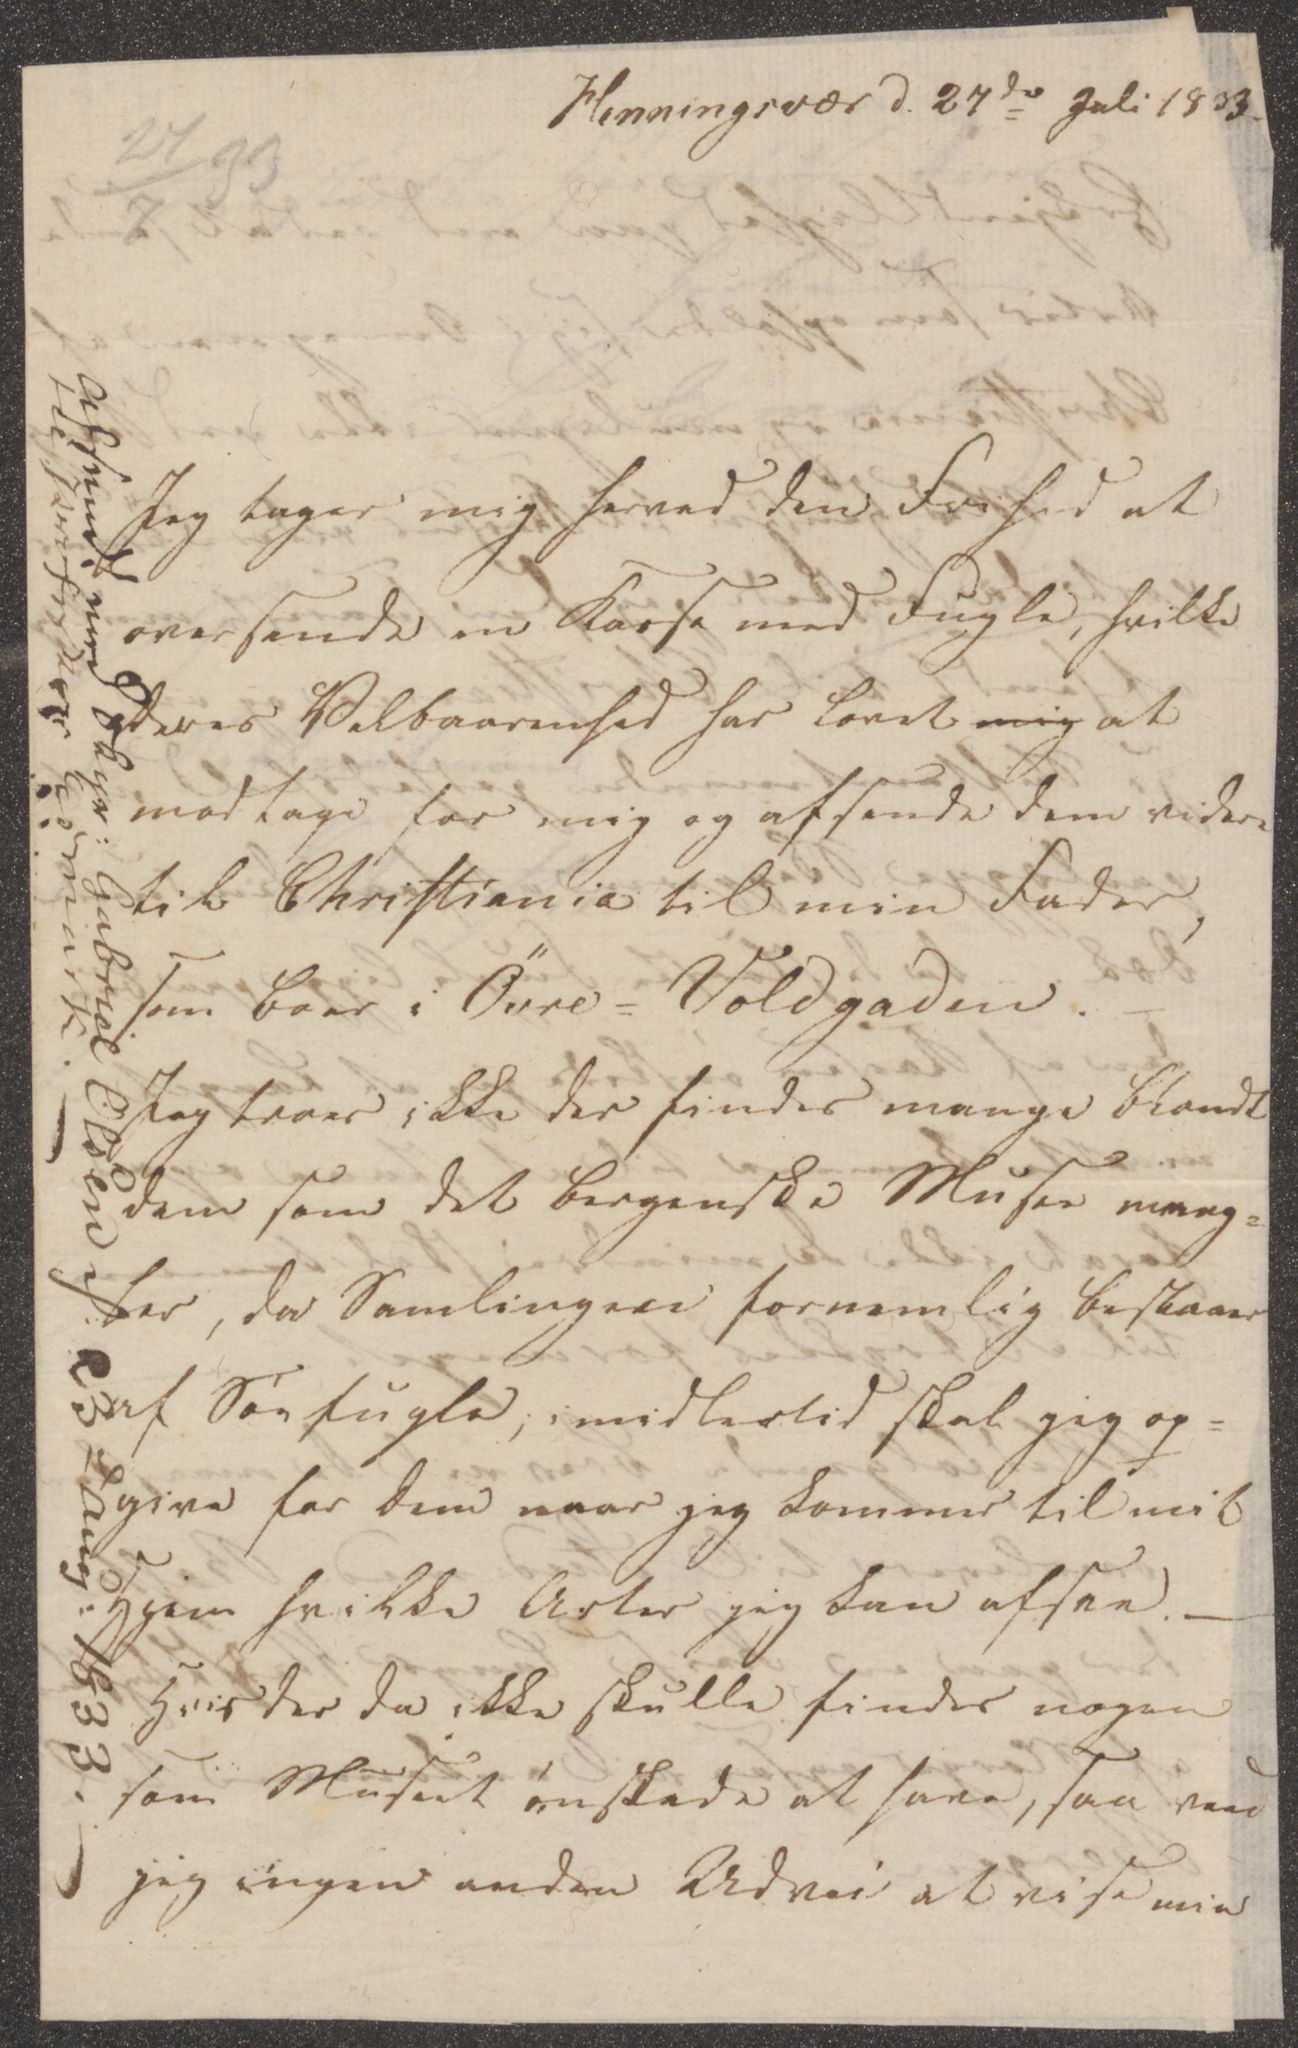 Henningsvær d. 27de Juli 1833.
27/7 33
Jeg tager mig herved den Frihed at
oversende en Kasse med Fugle, hvilke
Deres Velbaarenhed har lovet mig at
modtage for mig og afsende dem videre
til Christiania til min Fader,
som boer i Övre=Voldgaden. —
Jeg troer ikke der findes mange blandt
dem som det bergenske Musee mang=
ler, da Samlingen fornemlig bestaaer
af Söefugle; imidlertid skal jeg op=
give for dem naar jeg kommer til mit
Hjem hvilke Arter jeg kan afsee. —
Hvis der da ikke skulle findes nogen
som Museet önskede at have, saa veed
jeg ingen anden Udvei at vise min
Afsendt med Skipr: Gabriel Olsen
23 Aug: 1833.